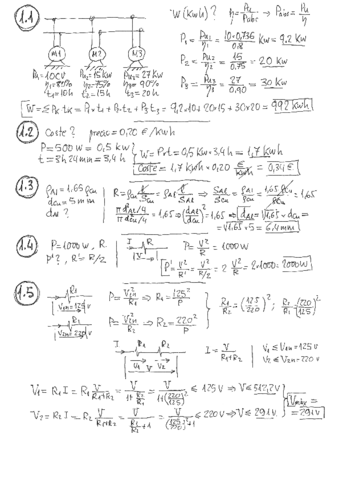 1.1
W (Kwh)? η = Pu/Pabs → Pabs = Pu/η
M1 M2 M3
Pu1 = 10CV Pu2 = 15 KW Pu3 = 27 KW
η1 = 80% η2 = 75% η3 = 90%
t1 = 10h t2 = 15h t3 = 20h
P1 = Pu1/η1 = 10×0,736/0,8 KW = 9,2 KW
P2 = Pu2/η2 = 15/0,75 = 20 KW
P3 = Pu3/η3 = 27/0,90 = 30 KW
W = ΣPk tk = P1 t1 + P2 t2 + P3 t3 = 9,2×10+20×15+30×20 = 992 Kwh
1.2 Coste? precio = 0,20 €/kwh
P = 500 W = 0,5 KW
t = 3h 24 min = 3,4 h
W = P×t = 0,5 KW×3,4h = 1,7 Kwh
Coste = 1,7 Kwh × 0,20 €/Kwh = 0,34 €
1.3 ρAl = 1,65 ρcu
dcu = 5 mm
dAl?
R = ρcu l/Scu = ρAl l/SAl ⇒ SAl/Scu = ρAl/ρcu = 1,65 ρcu/ρcu = 1,65
π dAl²/4 / π dcu²/4 = 1,65 ⇒ (dAl/dcu)² = 1,65 ⇒ dAl = √1,65 × dcu =
= √1,65 × 5 = 6,4 mm
1.4 P = 1000 W, R
P'?, R' = R/2
I R
V
P = V²/R = 1000 W
P' = V²/R' = V²/R/2 = 2 V²/R = 2×1000 = 2000 W
1.5
R1
V1n = 125 V
P = V1n²/R1 ⇒ R1 = 125²/P
R2
V2n = 220 V
P = V2n²/R2 ⇒ R2 = 220²/P
R1/R2 = (125/220)²; R2/R1 = (220/125)²
I R1 R2
V1 V2
V
I = V/R1+R2
V1 ≤ V1n = 125 V
V2 ≤ V2n = 220 V
V1 = R1 I = R1 V/R1+R2 = V/1+R2/R1 = V/1+(220/125)² ≤ 125 V ⇒ V ≤ 512,2 V
V2 = R2 I = R2 V/R1+R2 = V/R1/R2+1 = V/(125/220)²+1 ≤ 220 V ⇒ V ≤ 291 V
Vmax =
= 291 V